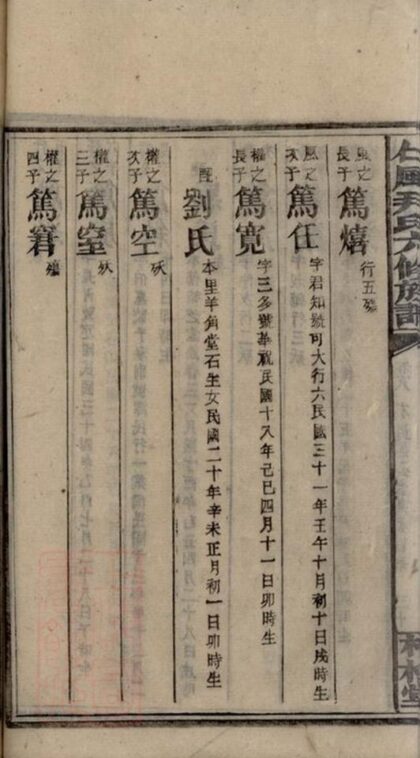 風之長子篤熺行五殤
風之次子篤任字君知號可大行六民國三十一年壬午十月初十日戌時生
權之長子篤寬字三多號華祝民國十八年己巳四月十一日卯時生
配劉氏本里羊角堂石生女民國二十年辛未正月初一日卯時生
權之次子篤空殀
權之三子篤室殀
權之四子篤窘殤